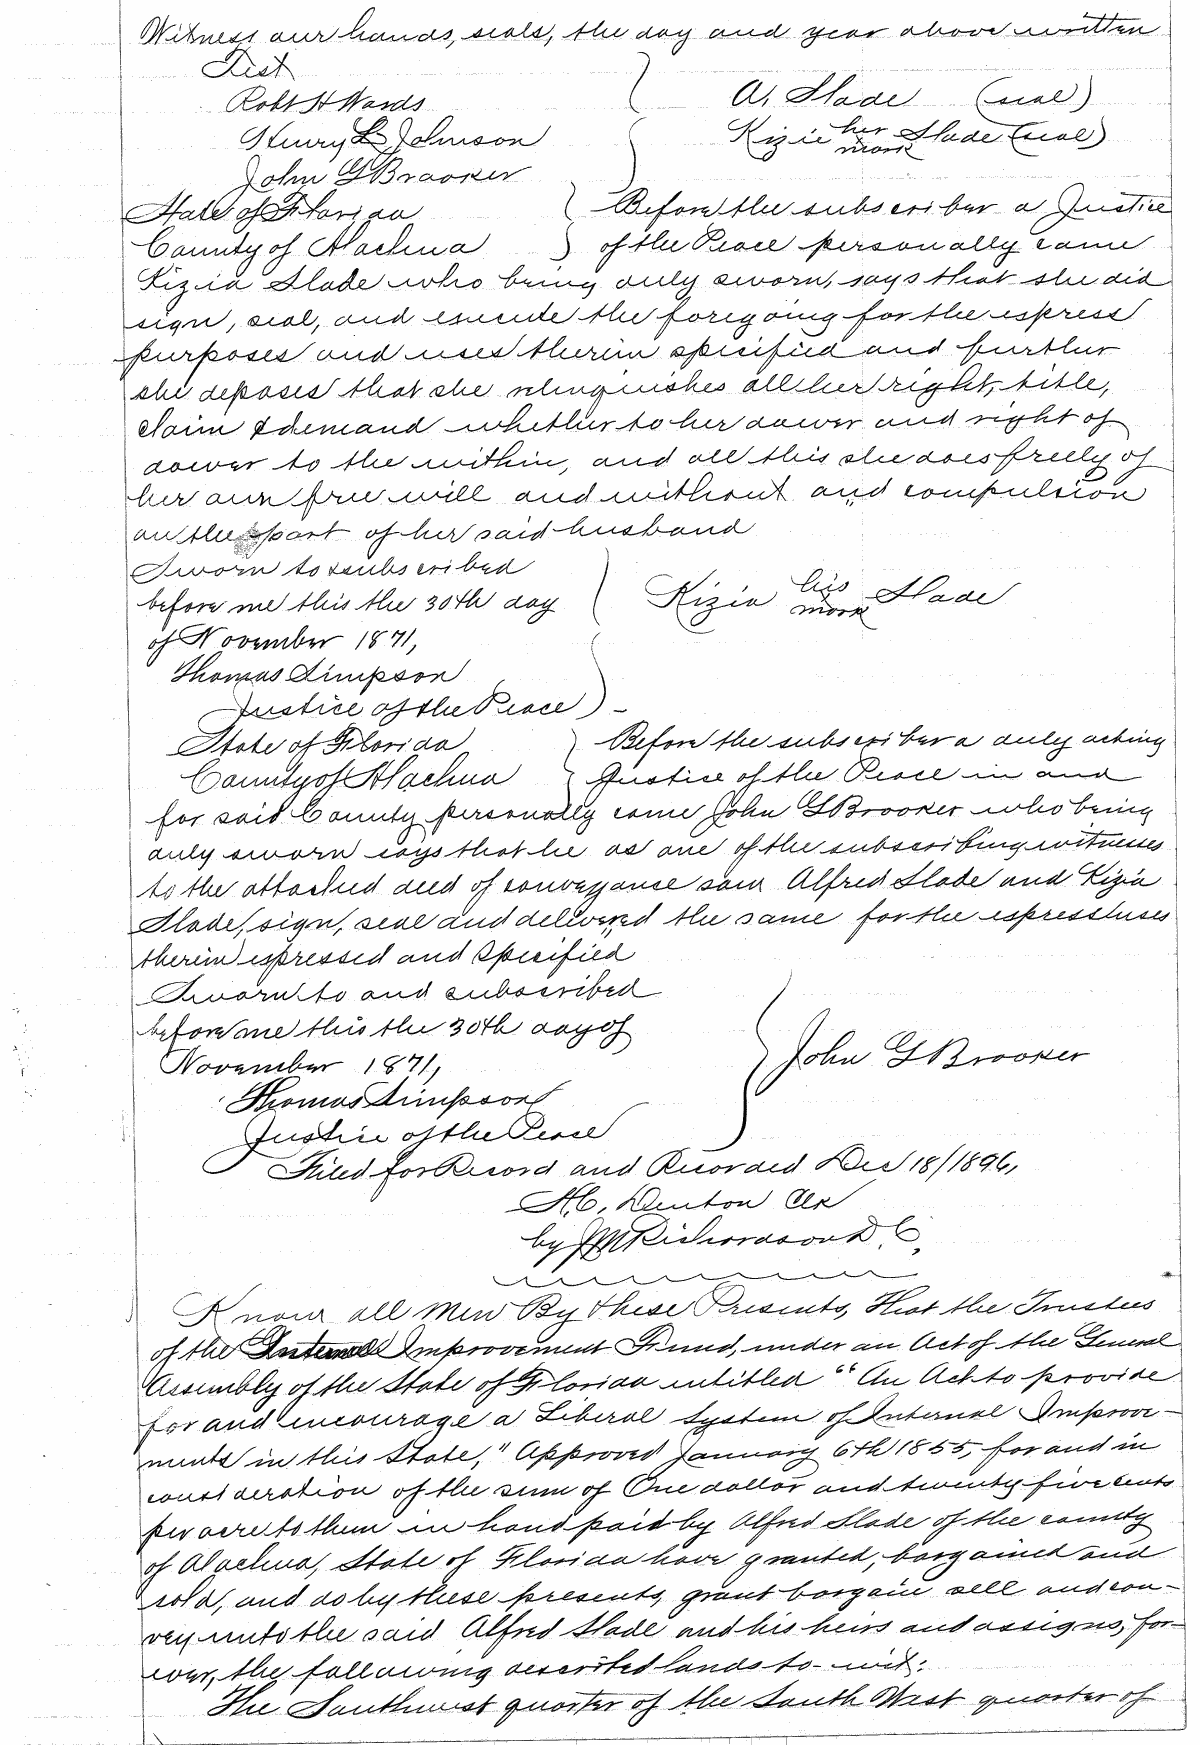 Witness our hands, seals, the day and year above written
Test
Robt H Wards A. Slade (seal)
Henry L Johnson Kizie her mark Slade (seal)
John G Brooker
State of Florida } Before the subscriber a Justice
County of Alachua } of the Peace personally came
Kizia Slade who being duly sworn, says that she did
sign, seal, and execute the foregoing for the express
purposes and uses therein specified and further
she deposes that she relinquishes all her right, title,
claim & demand whether to her dower and right of
dower to the within, and all this she does freely of
her own free will and without and compulsion
on the part of her said husband
Sworn to & subscribed
before me this the 30th day Kizia his mark Slade
of November 1871,
Thomas Simpson
Justice of the Peace ) -
State of Florida } Before the subscriber a duly acting
County of Alachua } Justice of the Peace in and
for said County personally came John G Brooker who being
duly sworn says that he as one of the subscribing witnesses
to the attached deed of conveyance saw Alfred Slade and Kizia
Slade, sign, seal and delivered the same for the express uses
therein expressed and specified
Sworn to and subscribed
before me this the 30th day of
November 1871, John G Brooker
Thomas Simpson
Justice of the Peace
Filed for Record and Recorded Dec 18/1896,
H.C. Denton Clk
by JM Richardson D.C.
Know all Men By these Presents, That the Trustees
of the Internal Improvement Fund, under an Act of the General
Assembly of the State of Florida entitled "An Act to provide
for and encourage a Liberal System of Internal Improve-
ments in this State," Approved January 6th 1855, for and in
consideration of the sum of One dollar and twenty five cents
per acre to them in hand paid by Alfred Slade of the county
of Alachua, State of Florida have granted, bargained and
sold, and do by these presents, grant bargain sell and con-
vey unto the said Alfred Slade and his heirs and assigns, for-
ever, the following described lands to-wit:
The Southwest quarter of the South West quarter of